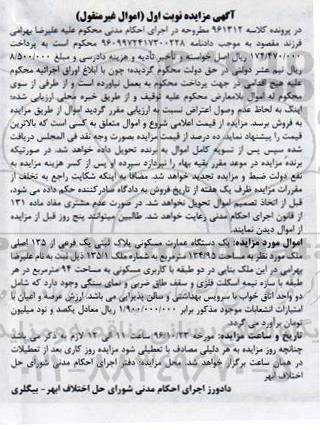 آگهی مزایده نوبت اول (اموال غیرمنقول)
در پرونده کلاسه ۹۶۱۳۱۲ مطروحه در اجرای احکام مدنی محکوم علیه علیرضا بهرامی
فرزند مقصود به موجب دادنامه ۹۶۰۹۹۷۲۴۱۷۳۰۰۲۲۸ محکوم است به پرداخت
۱۷۴/۴۷۰/۰۰۰ ریال اصل خواسته و تأخیر تأدیه و هزینه دادرسی و مبلغ ۸/۵۰۰/۰۰۰
ریال نیم عشر دولتی در حق دولت محکوم گردیده؛ چون با ابلاغ اوراق اجرائیه محکوم
علیه هیچ اقدامی در جهت پرداخت محکوم به بعمل نیاورده است و از طرفی از سوی
محکوم له اموال بلامعارض محکوم علیه توقیف و از طریق خبره محلی ارزیابی شده؛
اینک به لحاظ عدم وصول اعتراض نسبت به ارزیابی مقرر گردید اموال از طریق مزایده
به فروش برسد. مزایده از قیمت اعلامی شروع و اموال متعلق به کسی است که بالاترین
قیمت را پیشنهاد نماید، ده درصد از قیمت مزایده بصورت وجه نقد فی المجلس دریافت
سپس پس از تسویه کامل اموال به برنده تحویل داده خواهد شد. در صورتیکه
برنده مزایده در موعد مقرر بقیه بهاء را نپردازد سپرده او پس از کسر هزینه مزایده به
نفع دولت ضبط و مزایده تجدید خواهد شد. مضافا به اینکه شکایت راجع به تخلف از
مقررات مزایده ظرف یک هفته از تاریخ فروش به دادگاه صادرکننده حکم داده می شود،
قبل از اتخاذ تصمیم اموال تحویل نخواهد شد. در صورت عدم مشتری مفاد ماده ۱۳۱
از قانون اجرای احکام مدنی رعایت خواهد شد. طالبین میتوانند پنج روز قبل از مزایده
از اموال دیدن نمایند.
اموال مورد مزایده: یک دستگاه عمارت مسکونی پلاک ثبتی یک فرعی از ۱۳۵ اصلی
ملک مورد نظر به مساحت ۱۳۴/۹۵ مترمربع به شماره ملک ۱۳۵/۱ ذیل ثبت به نام علیرضا
بهرامی در این ملک بنایی در دو طبقه با کاربری مسکونی به مساحت ۹۴ مترمربع در هر
طبقه با سازه نیمه اسکلت فلزی و سقف طاق ضربی و نمای سنگی وجود دارد که شامل
دو واحد اتاق خواب با سرویس بهداشتی و سالن پذیرایی می باشد. ارزش عرصه و اعیان با
امتیازات انشعابات موجود مذکور برابر ۱/۹۰۰/۰۰۰/۰۰۰ ریال معادل یکصد و نود میلیون
تومان برآورد می گردد.
تاریخ و ساعت مزایده: مورخه ۹۶/۱۰/۲۳ ساعت ۱۱ الی ۱۲ لازم به ذکر می باشد
چنانچه روز مزایده به هر دلیلی مصادف با تعطیلی شود مزایده روز کاری بعد از تعطیلات
در همان ساعت برگزار خواهد شد. محل مزایده: دفتر اجرای احکام مدنی شورای حل
اختلاف ابهر
دادورز اجرای احکام مدنی شورای حل اختلاف ابهر - بیگلری